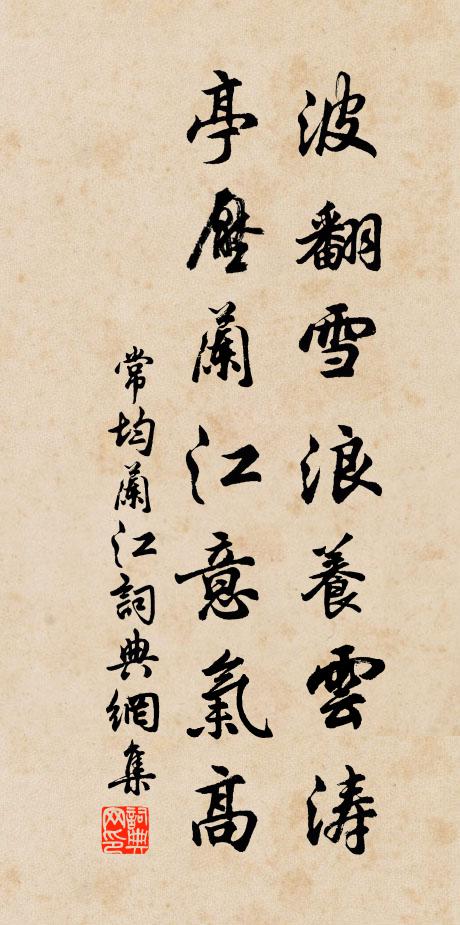 波翻雪浪養雲濤
亭壓蘭江意氣高
常均蘭江詞典網集
詞典網印